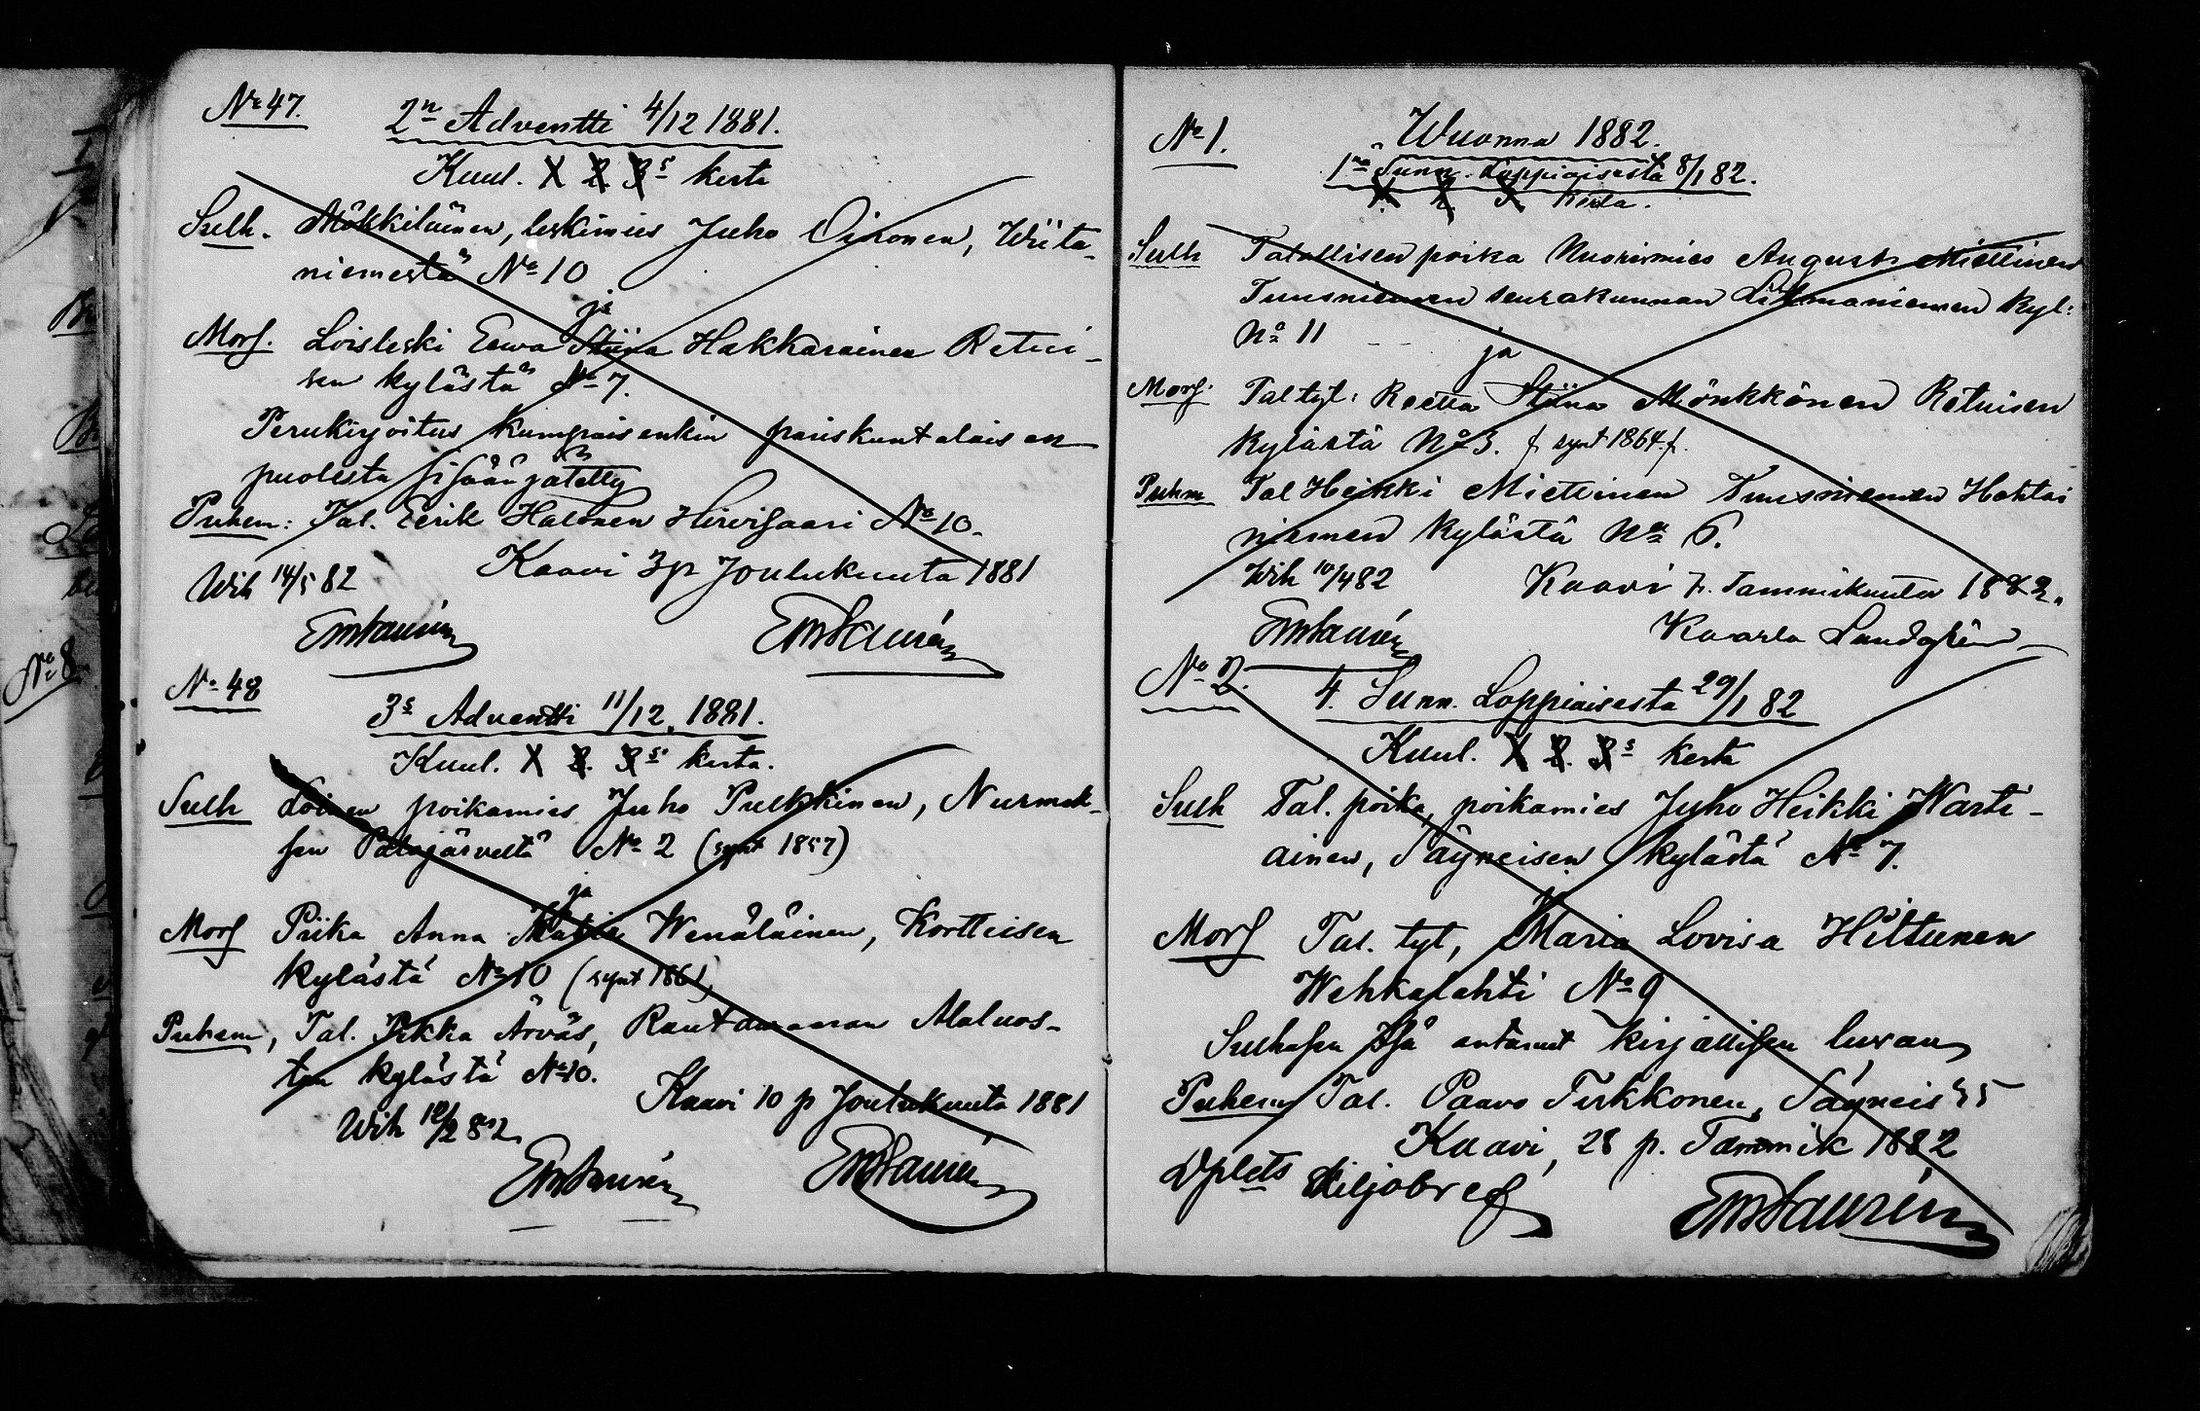 No 47.
2n Adventti 4/12 1881.
Kuul. 1 2. 3s kerta
Sulh. Mökkiläinen, leskimies Juho Oinonen, Wiita-
niemestä No 10
ja
Mors. Loisleski Eewa Stiina Hakkarainen Retui-
sen kylästä No 7.
Perukirjoitus kumpaisenkin pariskuntalaisen
puolesta sisään jätetty
Puhem: Tal. Eerik Halonen Hirvisaari No 10.
Kaavi 3 p Joulukuuta 1881
Wih 14/5 82
No 48
3s Adventti 11/12. 1881.
Kuul. 1 2. 3s kerta.
Sulh Loinen poikamies Juho Pulkkinen, Nurmek-
sen Palojärveltä No 2 (synt 1857)
ja
Mors Piika Anna Maria Wenäläinen, Kortteisen
kylästä No 10 (synt 1861)
Puhem, Tal. Pekka Ärväs, Rautavaaran Alaluos-
tan kylästä No 10.
Kaavi 10 p Joulukuuta 1881
Wih 12/2 82
No 1.
Wuonna 1882.
1na Sunn. Loppiaisesta 8/1 82.
1. 2. 3. Kerta.
Sulh Talollisen poika Nuorimies August Miettinen
Tuusniemen seurakunnan Liukmaniemen kyl:
No 11
ja
Mors. Tal tyt: Reetta Stiina Mönkkönen Retuisen
kylästä No 3. f. synt 1864. f.
Puhm Tal Heikki Miettinen Tuusniemen Hohtai
niemen kylästä No 6.
Wih 10/4 82
Kaavi 7. Tammikuuta 1882.
Kaarlo Lundgrén
No 2.
4. Sunn. Loppiaisesta 29/1 82
Kuul. 1 2. 3s kerta
Sulh Tal. poika, poikamies Juho Heikki Warti-
ainen, Säyneisen kylästä No 7.
ja
Mors Tal. tyt, Maria Lovisa Hiltunen
Wehkalahti No 9
Sulhasen Isä antanut kirjallisen luvan
Puhem Tal. Paavo Tirkkonen, Säyneis 35
Kaavi, 28 p. Tammik 1882
No 8